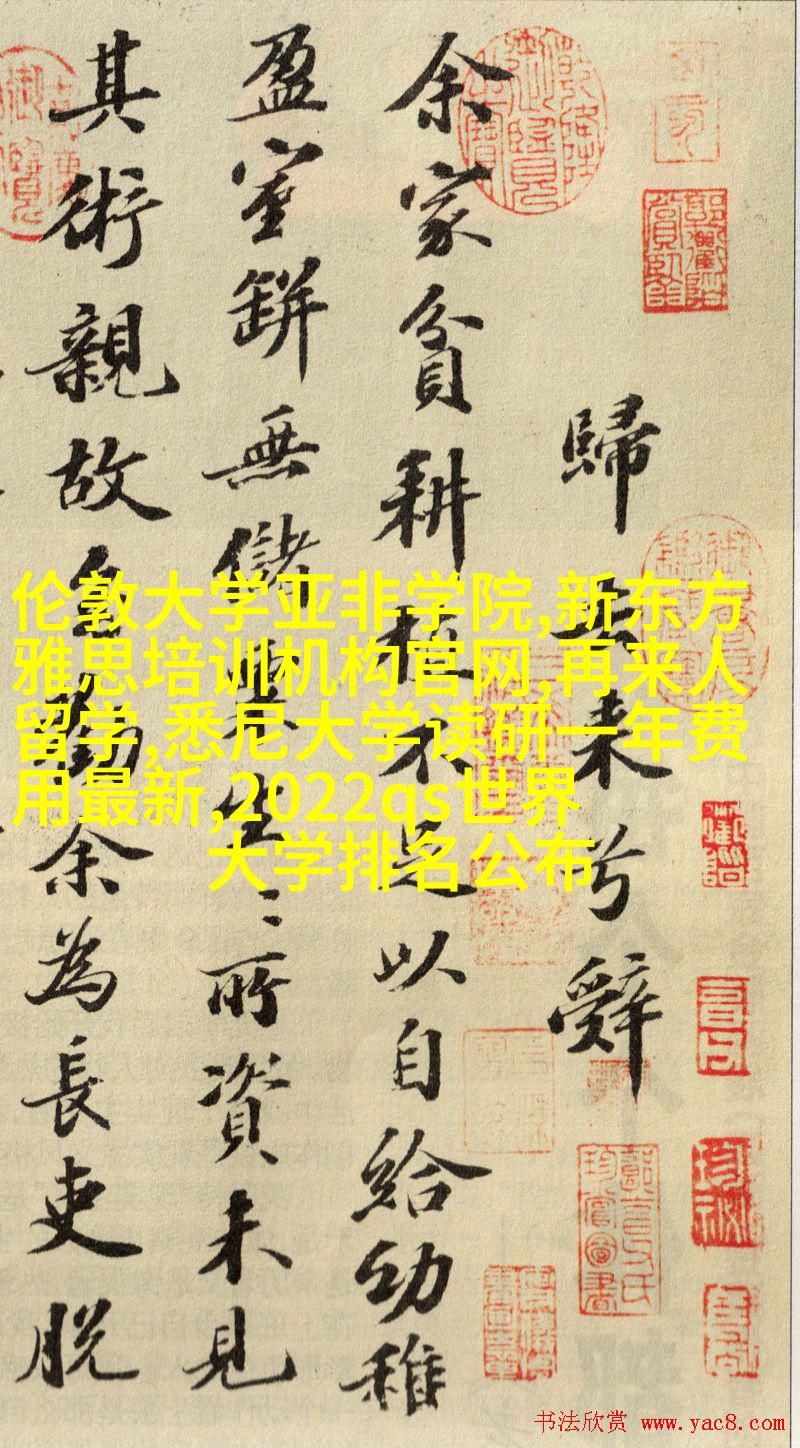 歸去来兮辭
余家貧耕植不足以自給幼稚
盈室缾無儲粟生〻所資未見
其術親故多勸余為長吏脫
伦敦大学亚非学院,新东方
雅思培训机构官网,再来人
留学,悉尼大学读研一年费
用最新,2022qs世界
大学排名公布
书法欣赏 www.yac8.com